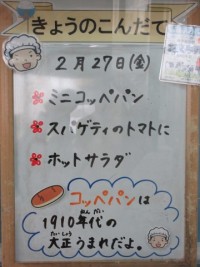 きょうのこんだて
2月27日(金)
ミニコッペパン
スパゲティのトマトに
ホットサラダ
コッペパンは
1910年代の
大正うまれだよ。